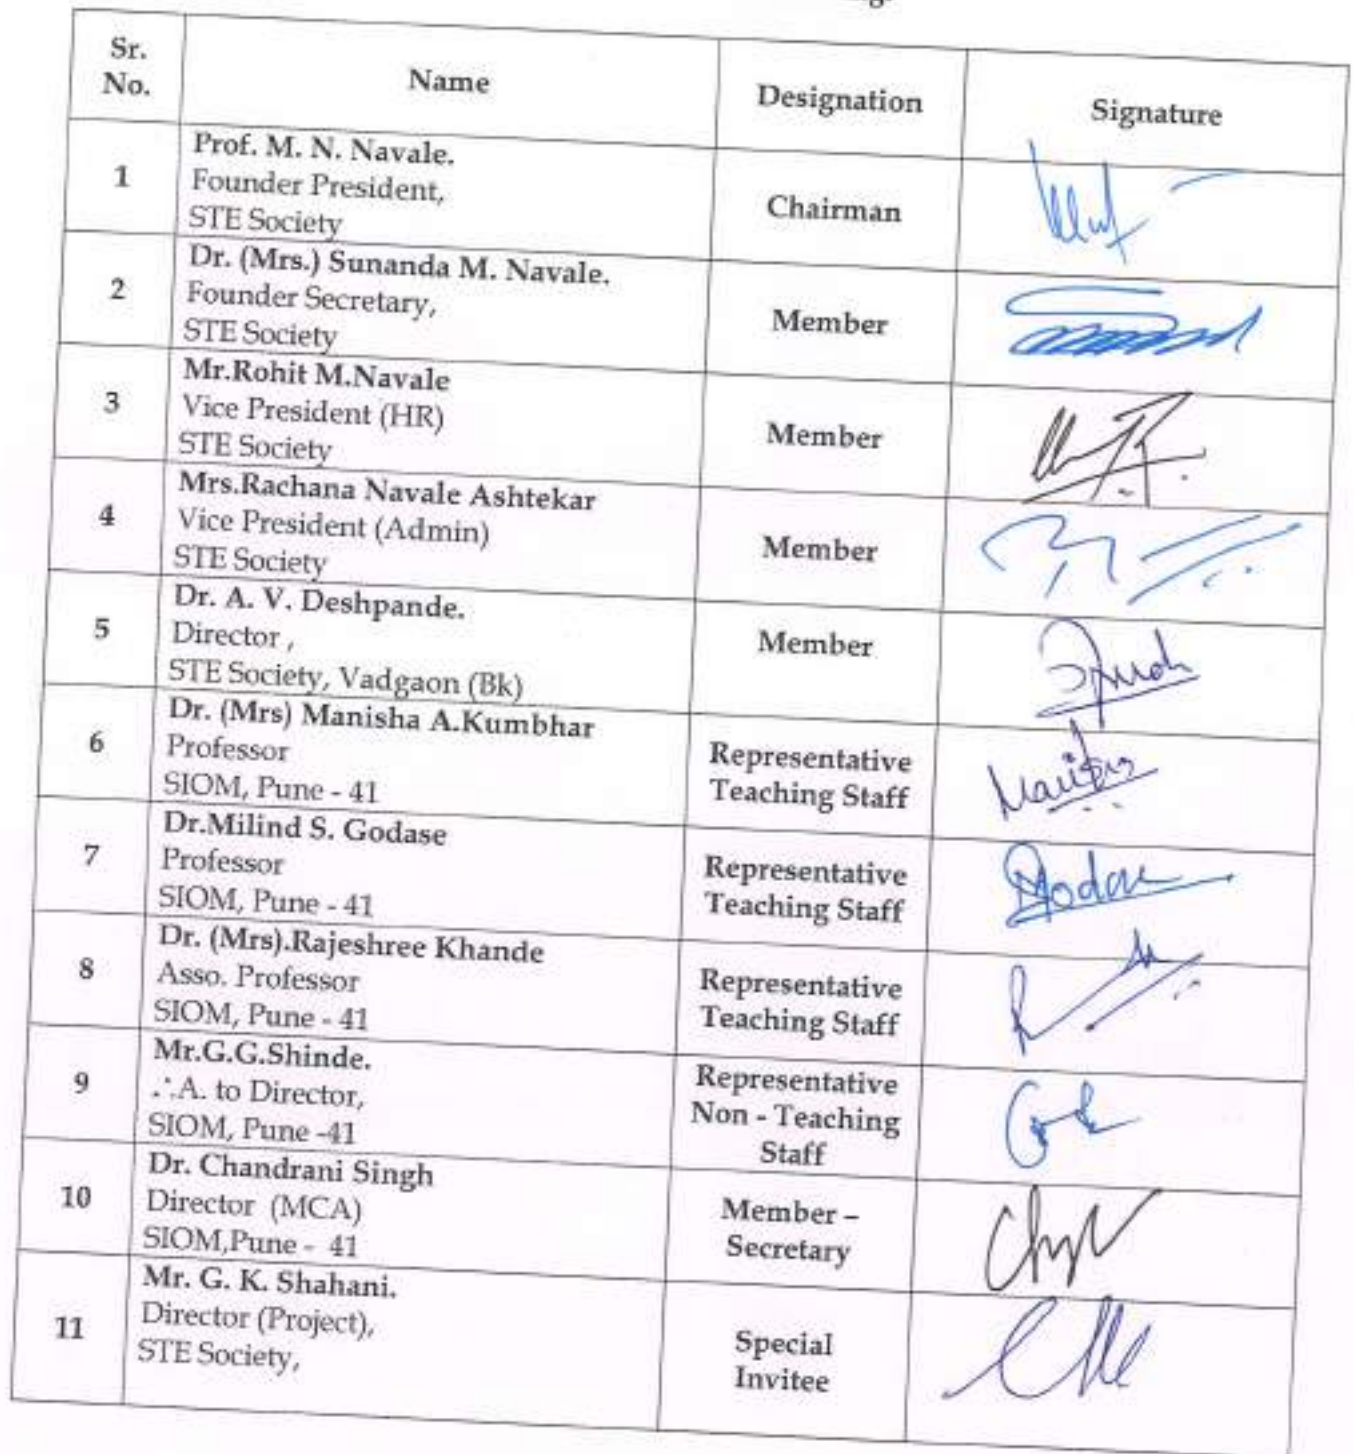 Sr.
No.
Name
Designation
Signature
1
Prof. M. N. Navale.
Founder President,
STE Society
Chairman
2
Dr. (Mrs.) Sunanda M. Navale.
Founder Secretary,
STE Society
Member
3
Mr.Rohit M.Navale
Vice President (HR)
STE Society
Member
4
Mrs.Rachana Navale Ashtekar
Vice President (Admin)
STE Society
Member
5
Dr. A. V. Deshpande.
Director ,
STE Society, Vadgaon (Bk)
Member
6
Dr. (Mrs) Manisha A.Kumbhar
Professor
SIOM, Pune - 41
Representative
Teaching Staff
7
Dr.Milind S. Godase
Professor
SIOM, Pune - 41
Representative
Teaching Staff
8
Dr. (Mrs).Rajeshree Khande
Asso. Professor
SIOM, Pune - 41
Representative
Teaching Staff
9
Mr.G.G.Shinde.
to Director,
SIOM, Pune -41
Representative
Non - Teaching
Staff
10
Dr. Chandrani Singh
Director (MCA)
SIOM,Pune - 41
Member –
Secretary
11
Mr. G. K. Shahani.
Director (Project),
STE Society,
Special
Invitee